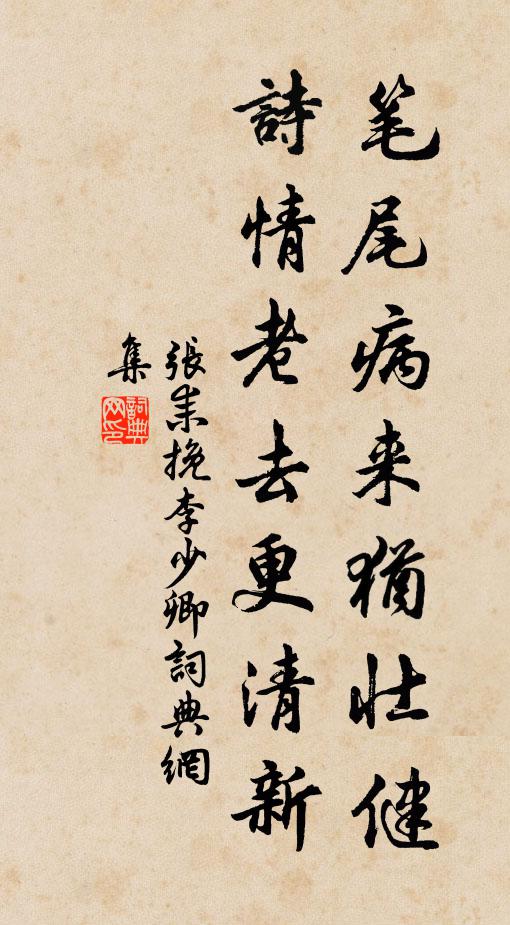 笔尾病来犹壮健
詩情老去更清新
張耒挽李少卿詞典網
集
詞典網印